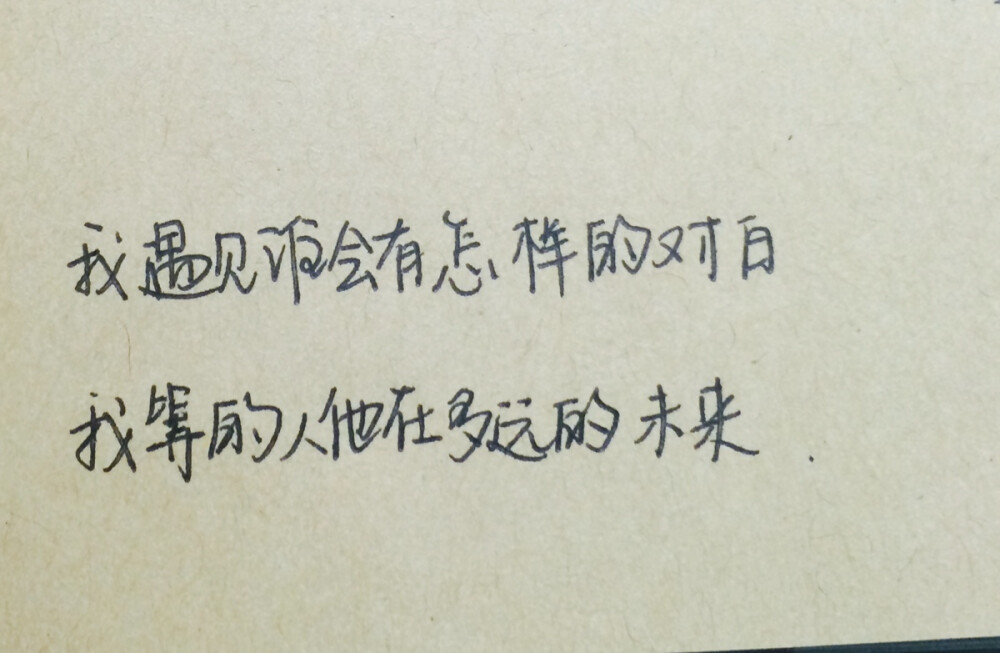 我遇见谁会有怎样的对白
我等的人他在多远的未来.